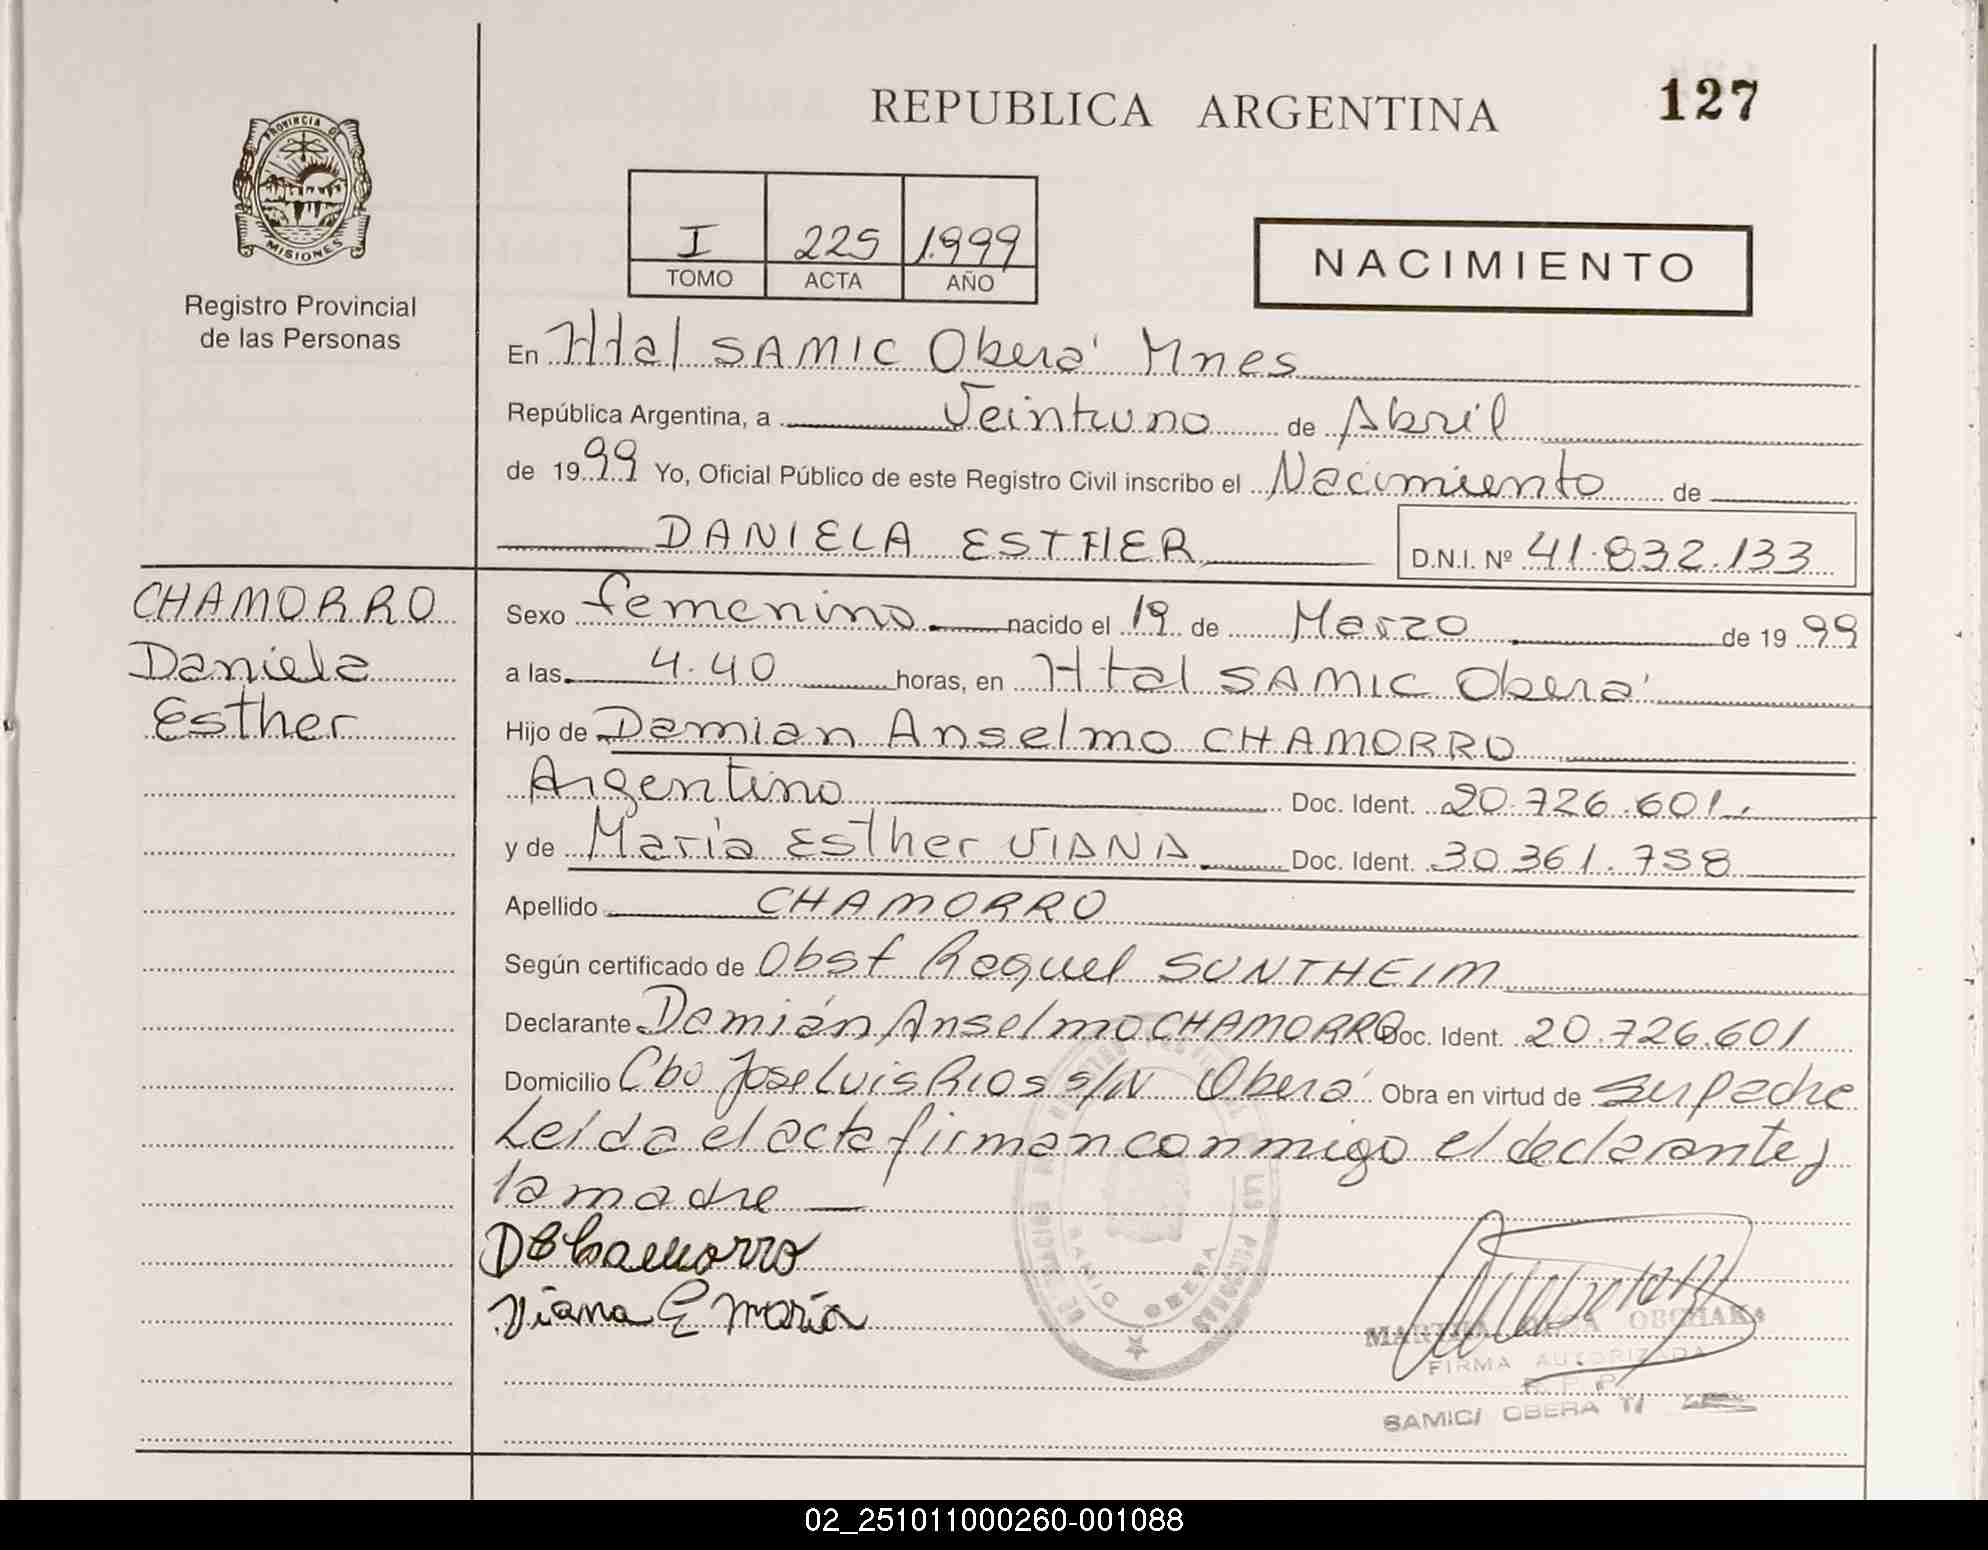 REPUBLICA ARGENTINA
127
PROVINCIA DE
MISIONES
Registro Provincial
de las Personas
I 225 1.999
TOMO ACTA AÑO
NACIMIENTO
En Htal SAMIC Oberá Mnes
República Argentina, a Veintiuno de Abril
de 1999 Yo, Oficial Público de este Registro Civil inscribo el Nacimiento de
DANIELA ESTHER D.N.I. Nº 41.832.133
CHAMORRO
Daniela
Esther
Sexo femenino nacido el 19 de Marzo de 1999
a las 4.40 horas, en Htal SAMIC Oberá
Hijo de Damian Anselmo CHAMORRO
Argentino Doc. Ident. 20.726.601.
y de María Esther VIANA Doc. Ident. 30.361.758
Apellido CHAMORRO
Según certificado de Obst Raquel SUNTHEIM
Declarante Damián Anselmo CHAMORRO Doc. Ident. 20.726.601
Domicilio Cbo Jose Luis Rios s/N Oberá Obra en virtud de su padre
Leída el acta firman conmigo el declarante y
la madre
D Chamorro
Viana E maria
SAMIC OBERA
OBCHAKA
FIRMA AUTORIZADA
SAMIC/ OBERA
02_251011000260-001088